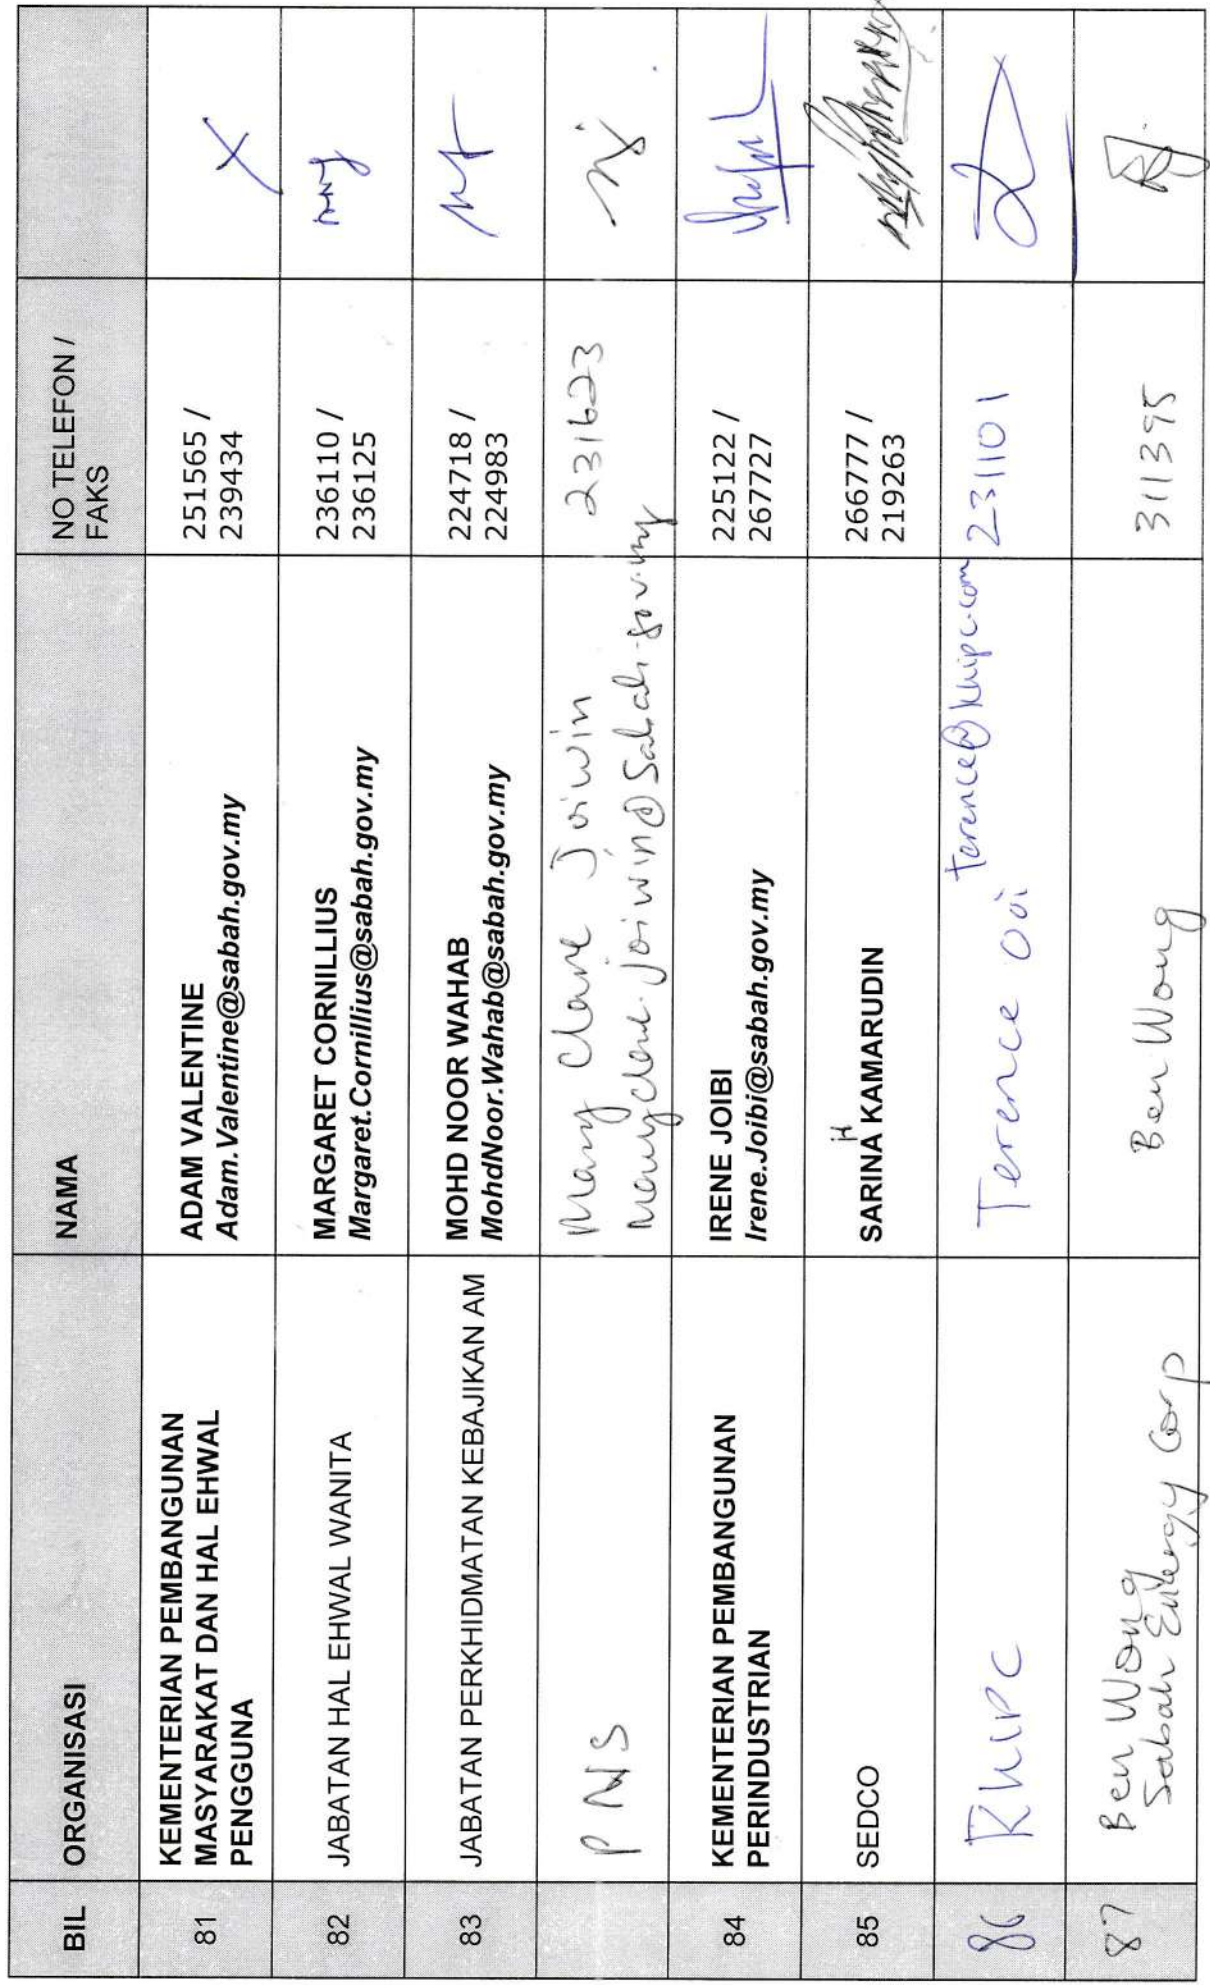 BIL
ORGANISASI
NAMA
NO TELEFON /
FAKS
81
KEMENTERIAN PEMBANGUNAN
MASYARAKAT DAN HAL EHWAL
PENGGUNA
ADAM VALENTINE
Adam.Valentine@sabah.gov.my
251565 /
239434
82
JABATAN HAL EHWAL WANITA
MARGARET CORNILLIUS
Margaret.Cornillius@sabah.gov.my
236110 /
236125
83
JABATAN PERKHIDMATAN KEBAJIKAN AM
MOHD NOOR WAHAB
MohdNoor.Wahab@sabah.gov.my
224718 /
224983
PNS
Mary Clare Joiwin
maryclare.joiwin@sabah.gov.my
231623
84
KEMENTERIAN PEMBANGUNAN
PERINDUSTRIAN
IRENE JOIBI
Irene.Joibi@sabah.gov.my
225122 /
267727
85
SEDCO
SARINA KAMARUDIN
266777 /
219263
86
KHIPC
Terence Ooi
terence@khipc.com
231101
87
Ben Wong
Sabah Energy Corp
Ben Wong
311395